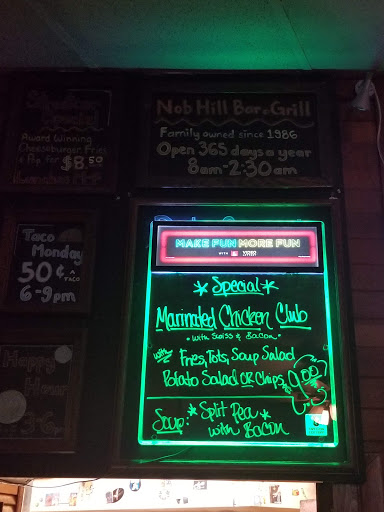 Special
Award Winning
Cheeseburger Fries
& Pop for $8.50
Nob Hill Bar & Grill
Family owned since 1986
Open 365 days a year
8am-2:30am
Taco
Monday
50¢ A TACO
6-9pm
Happy
Hour
MAKE FUN MORE FUN
WITH
* Special *
Marinated Chicken Club
• with Swiss & Bacon •
with Fries, Tots, Soup Salad
Potato Salad OR Chips
9.00
Soup: * Split Pea *
with Bacon